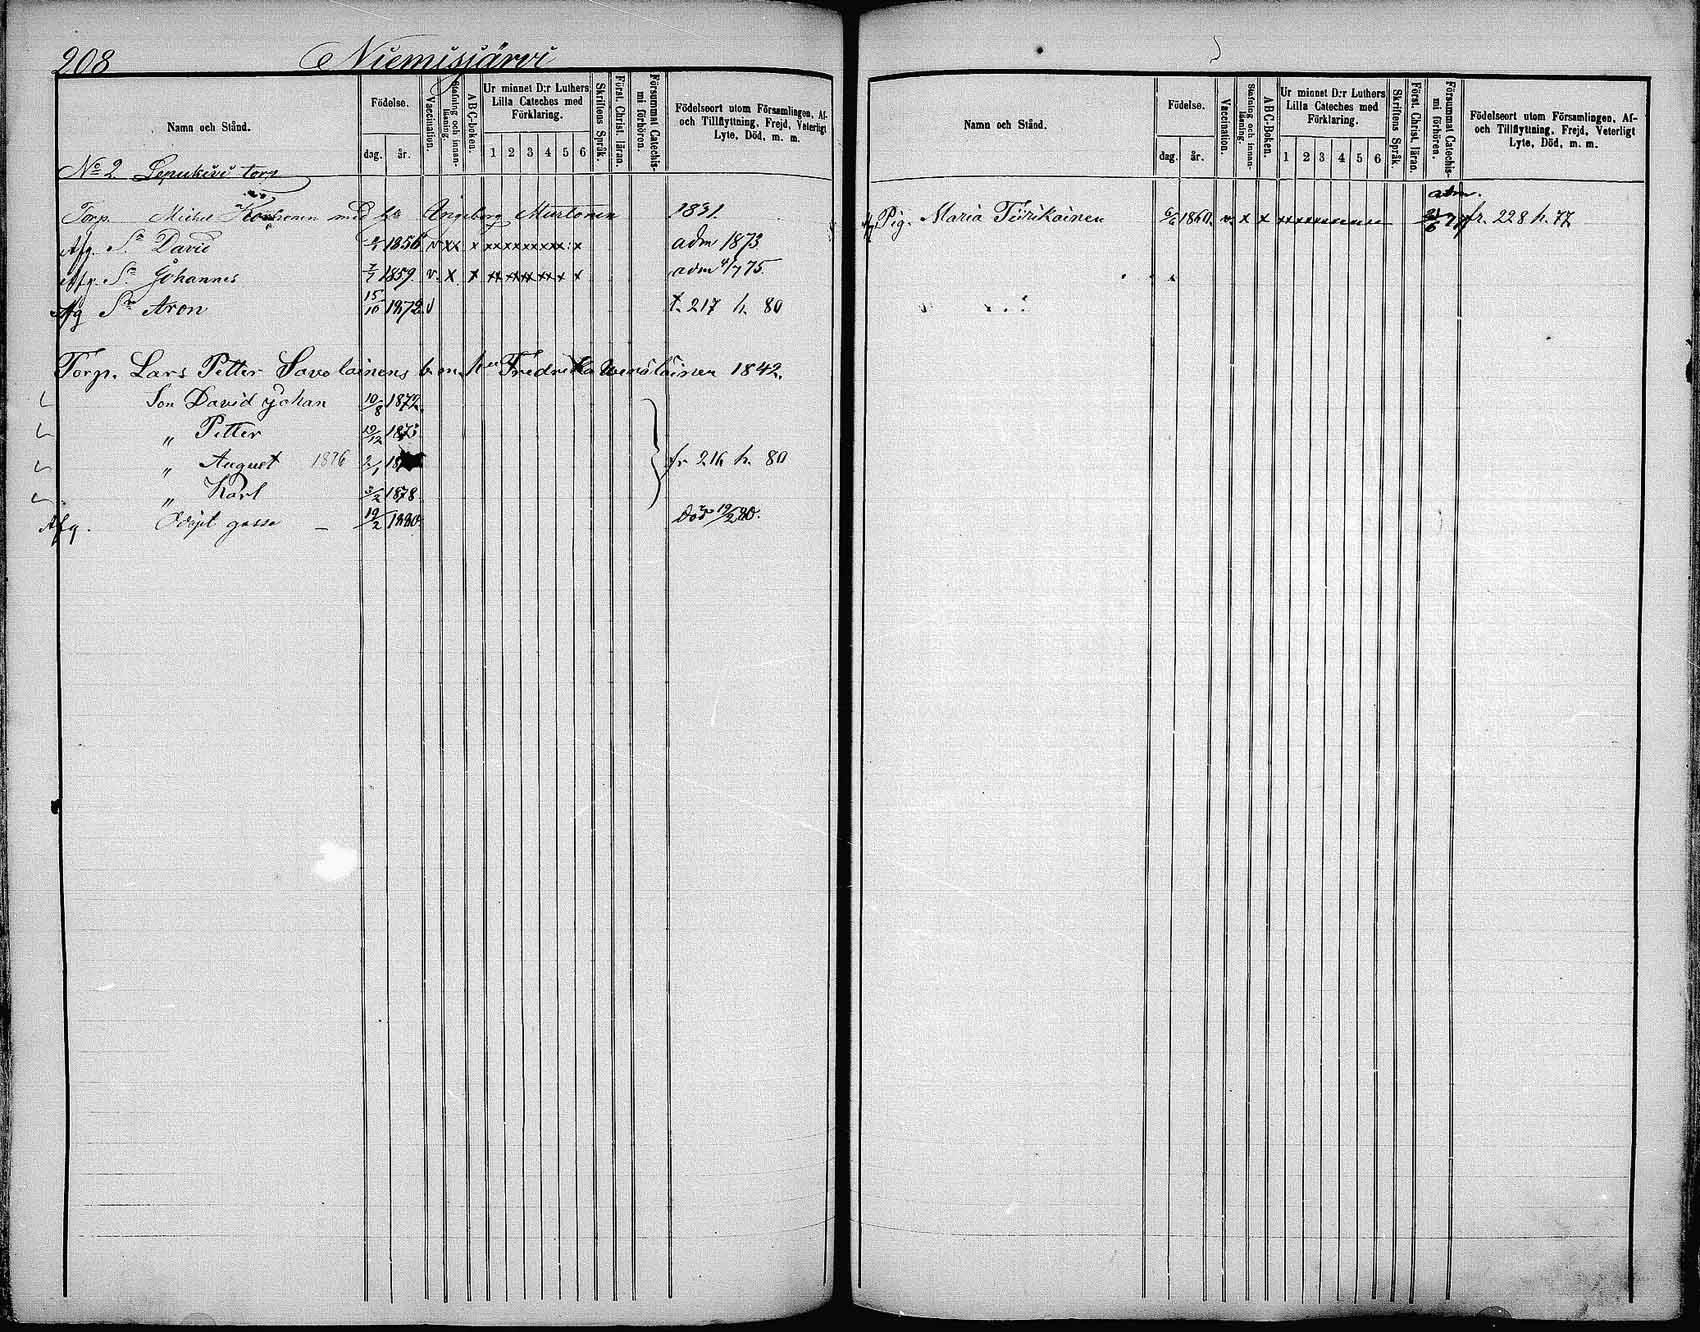 208 Niemisjärvi
Namn och Stånd.
Födelse.
dag. år.
Vaccination.
Stafning och innanläsning.
ABC-boken.
Ur minnet D:r Luthers Lilla Cateches med Förklaring.
1 2 3 4 5 6
Skriftens Språk.
Först. Christ. läran.
Försummat Catechismi förhören.
Födelseort utom Församlingen, Af- och Tillflyttning, Frejd, Veterligt Lyte, Död, m. m.
No 2 Lepukivi torp
Torp. Michel med hu Angeborg Murtonen 1831.
Afg. Sn David 1856 v xx x xxxxxxxxx x adm 1873
Afg. Sn Johannes 7/7 1859. v. x x xx xxx xx x x adm 4/7 75.
Afg Sn Aron 15/10 1872. v t. 217 h. 80
Torp. Lars Petter Savolainens b. m. hu Fredrika 1842.
Son David Johan 10/8 1872.
" Petter /12 1873
" August 1876 2/1
" Karl 3/2 1878
fr 216 h. 80
Afg. Odöpt gosse – 19/2 1880. död 19/2 80.
Namn och Stånd.
Födelse.
dag. år.
Vaccination.
Stafning och innanläsning.
ABC-Boken.
Ur minnet D:r Luthers Lilla Cateches med Förklaring.
1 2 3 4 5 6
Skriftens Språk.
Först. Christ. läran.
Försummat Catechismi förhören.
Födelseort utom Församlingen, Af- och Tillflyttning, Frejd, Veterligt Lyte, Död, m. m.
adm.
Pig. Maria Tiirikainen 1860. v. x x xxxxxxxxx fr. 228 h. 77